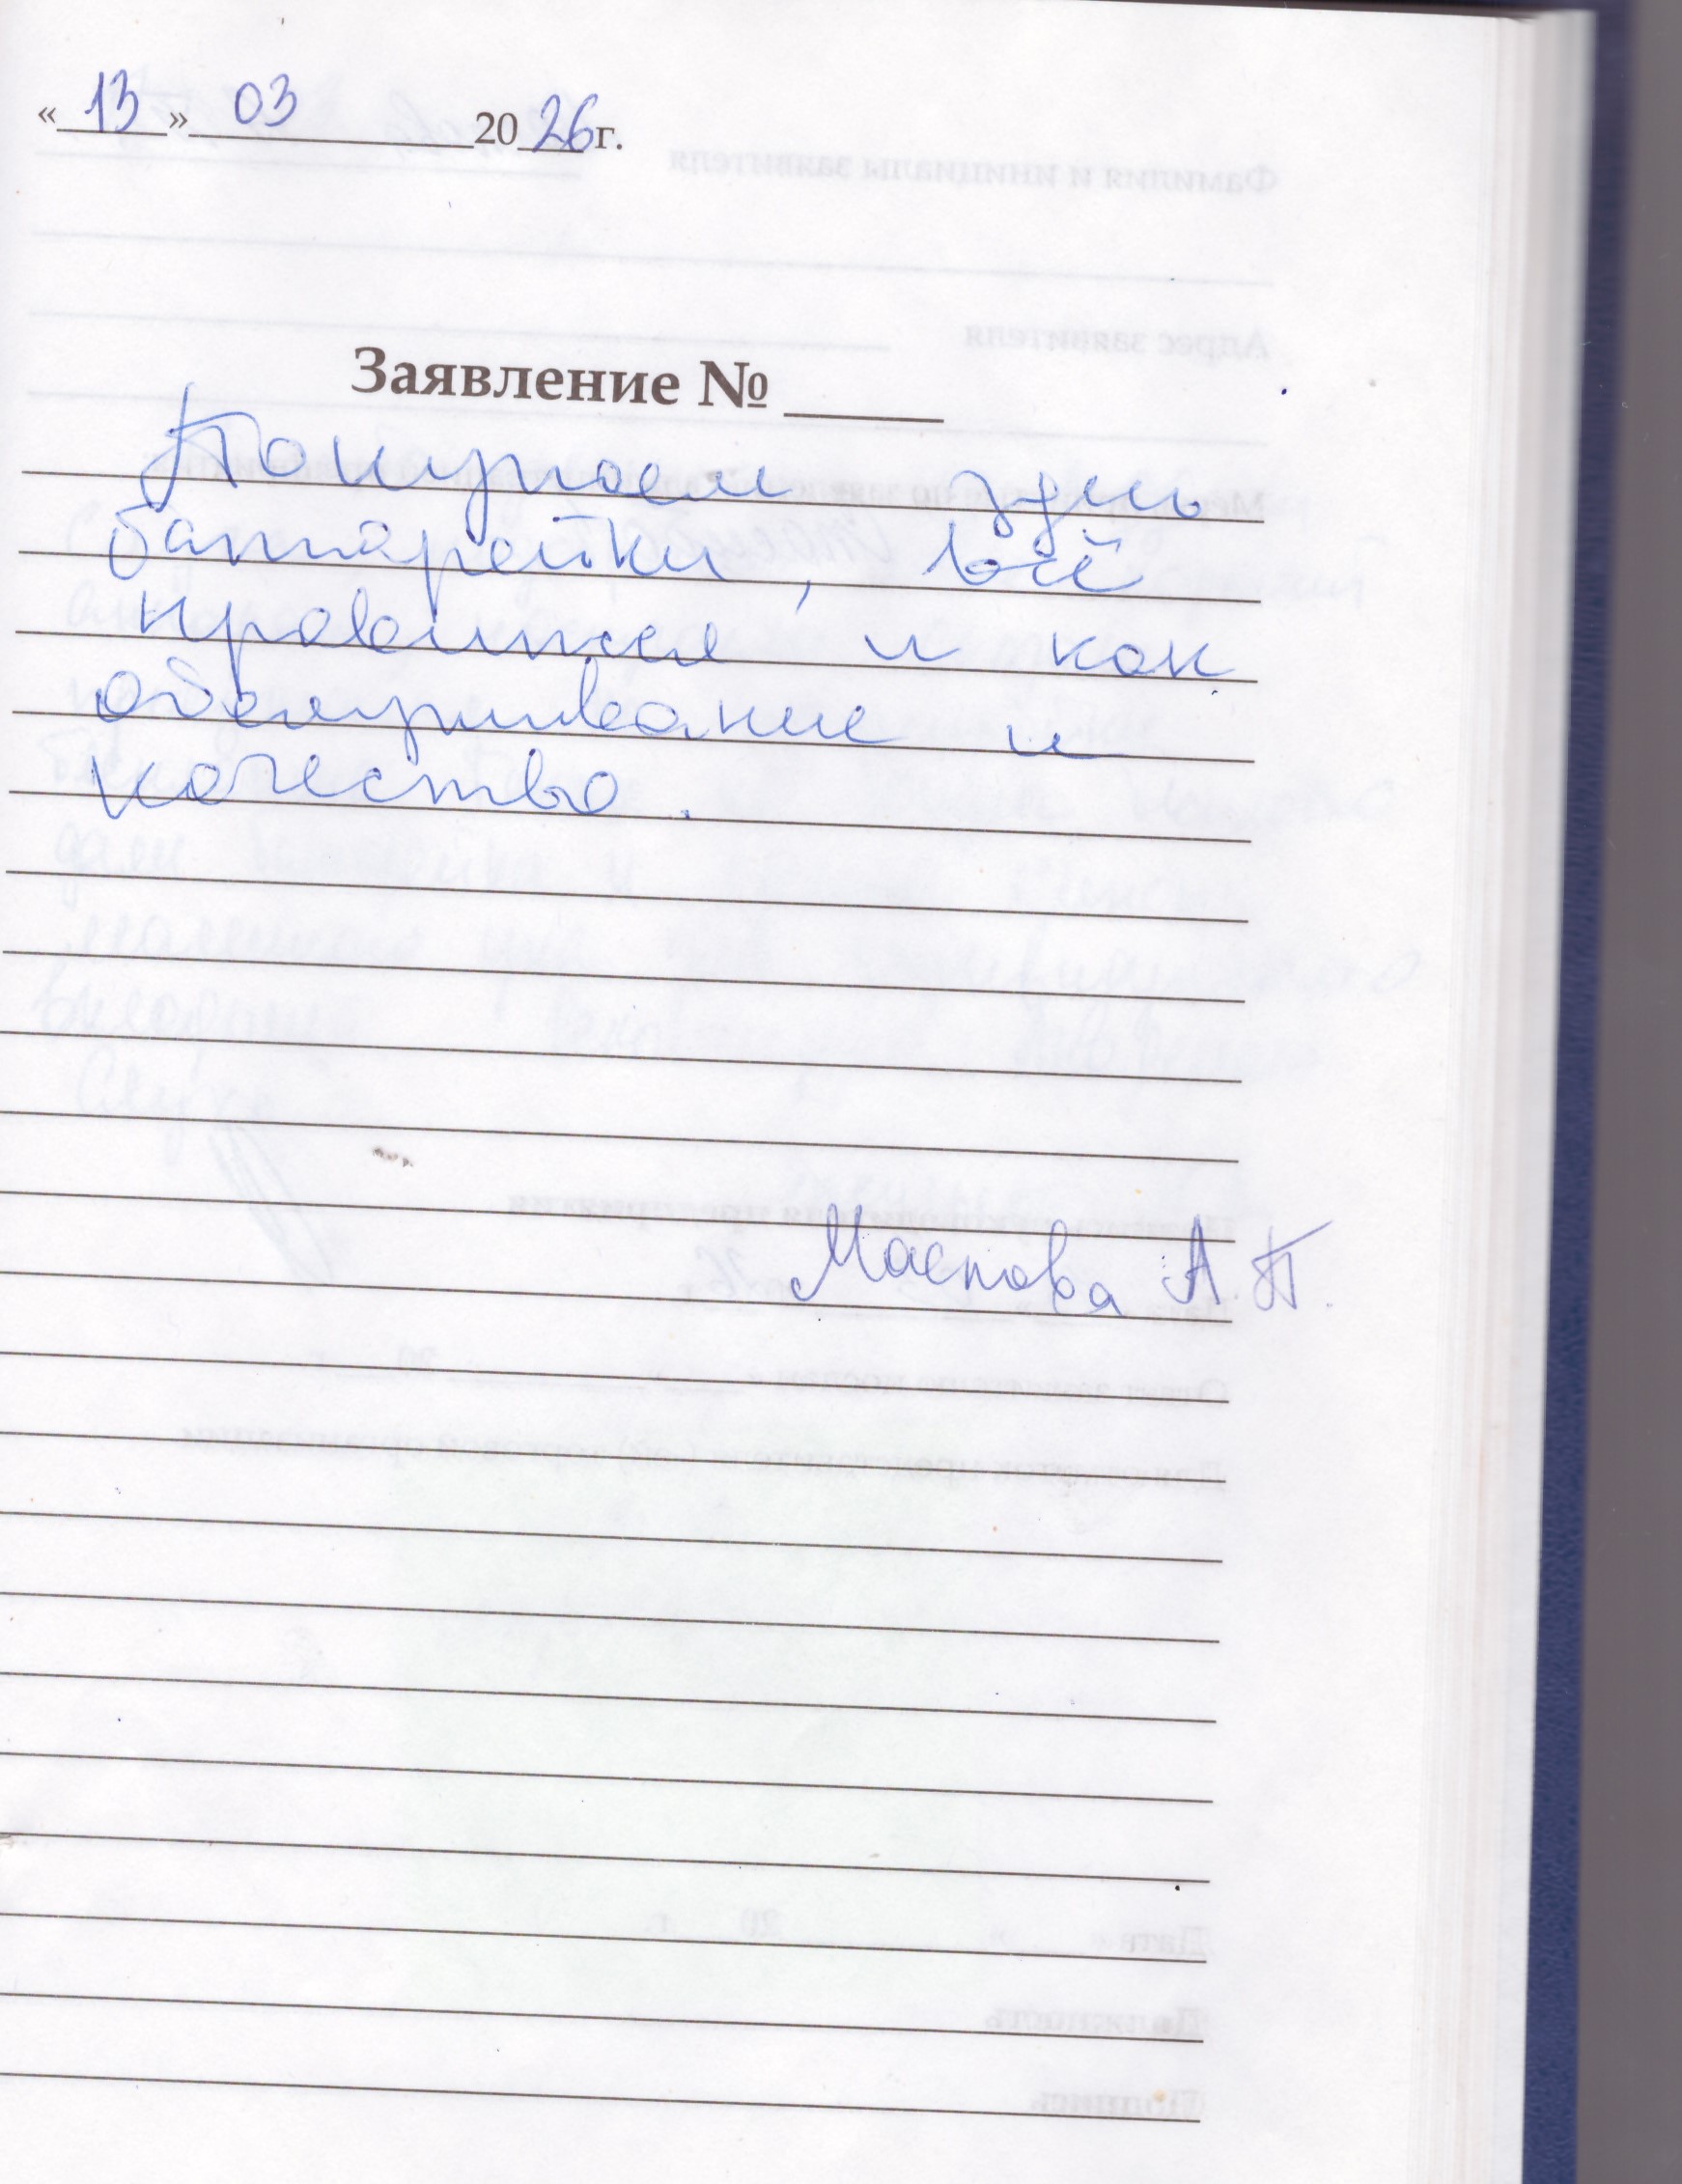 « 13 » 03 2026 г.
Заявление № _____
Покупаем здесь
батарейки, всё
нравится и как
обслуживание и
качество.
А.П.